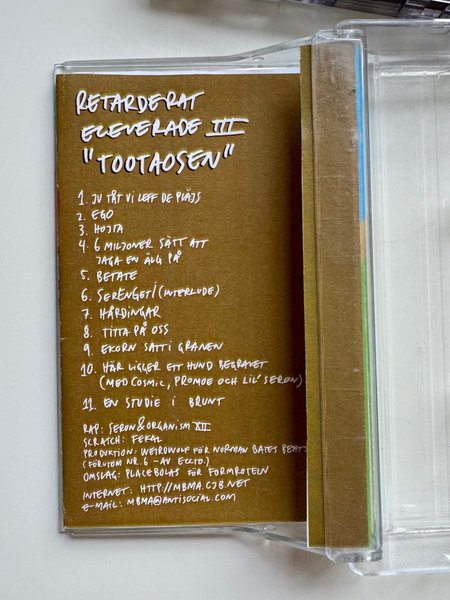 RETARDERAT
ELEVERADE III
"TOOTAOSEN"
1. JU TÅT VI LEFF DE PLÄJS
2. EGO
3. HOJTA
4. 6 MILJONER SÄTT ATT
JAGA EN ÄLG PÅ
5. BETATE
6. SERENGETI (INTERLUDE)
7. HÅRDINGAR
8. TITTA PÅ OSS
9. EKORN SATT I GRANEN
10. HÄR LIGGER ETT HUND BEGRAVET
(MED COSMIC, PROMOE OCH LIL' SERON)
11. EN STUDIE I BRUNT
RAP: SERON & ORGANISM XII
SCRATCH: FEKAL
PRODUKTION: WEIRDWOLF FÖR NORMAN BATES BEATZ
(FÖRUTOM NR. 6 - AV ECCTO.)
OMSLAG: PLACEBOLAS FÖR FORMROTELN
INTERNET: HTTP://MBMA.CJB.NET
E-MAIL: MBMA@ANTISOCIAL.COM